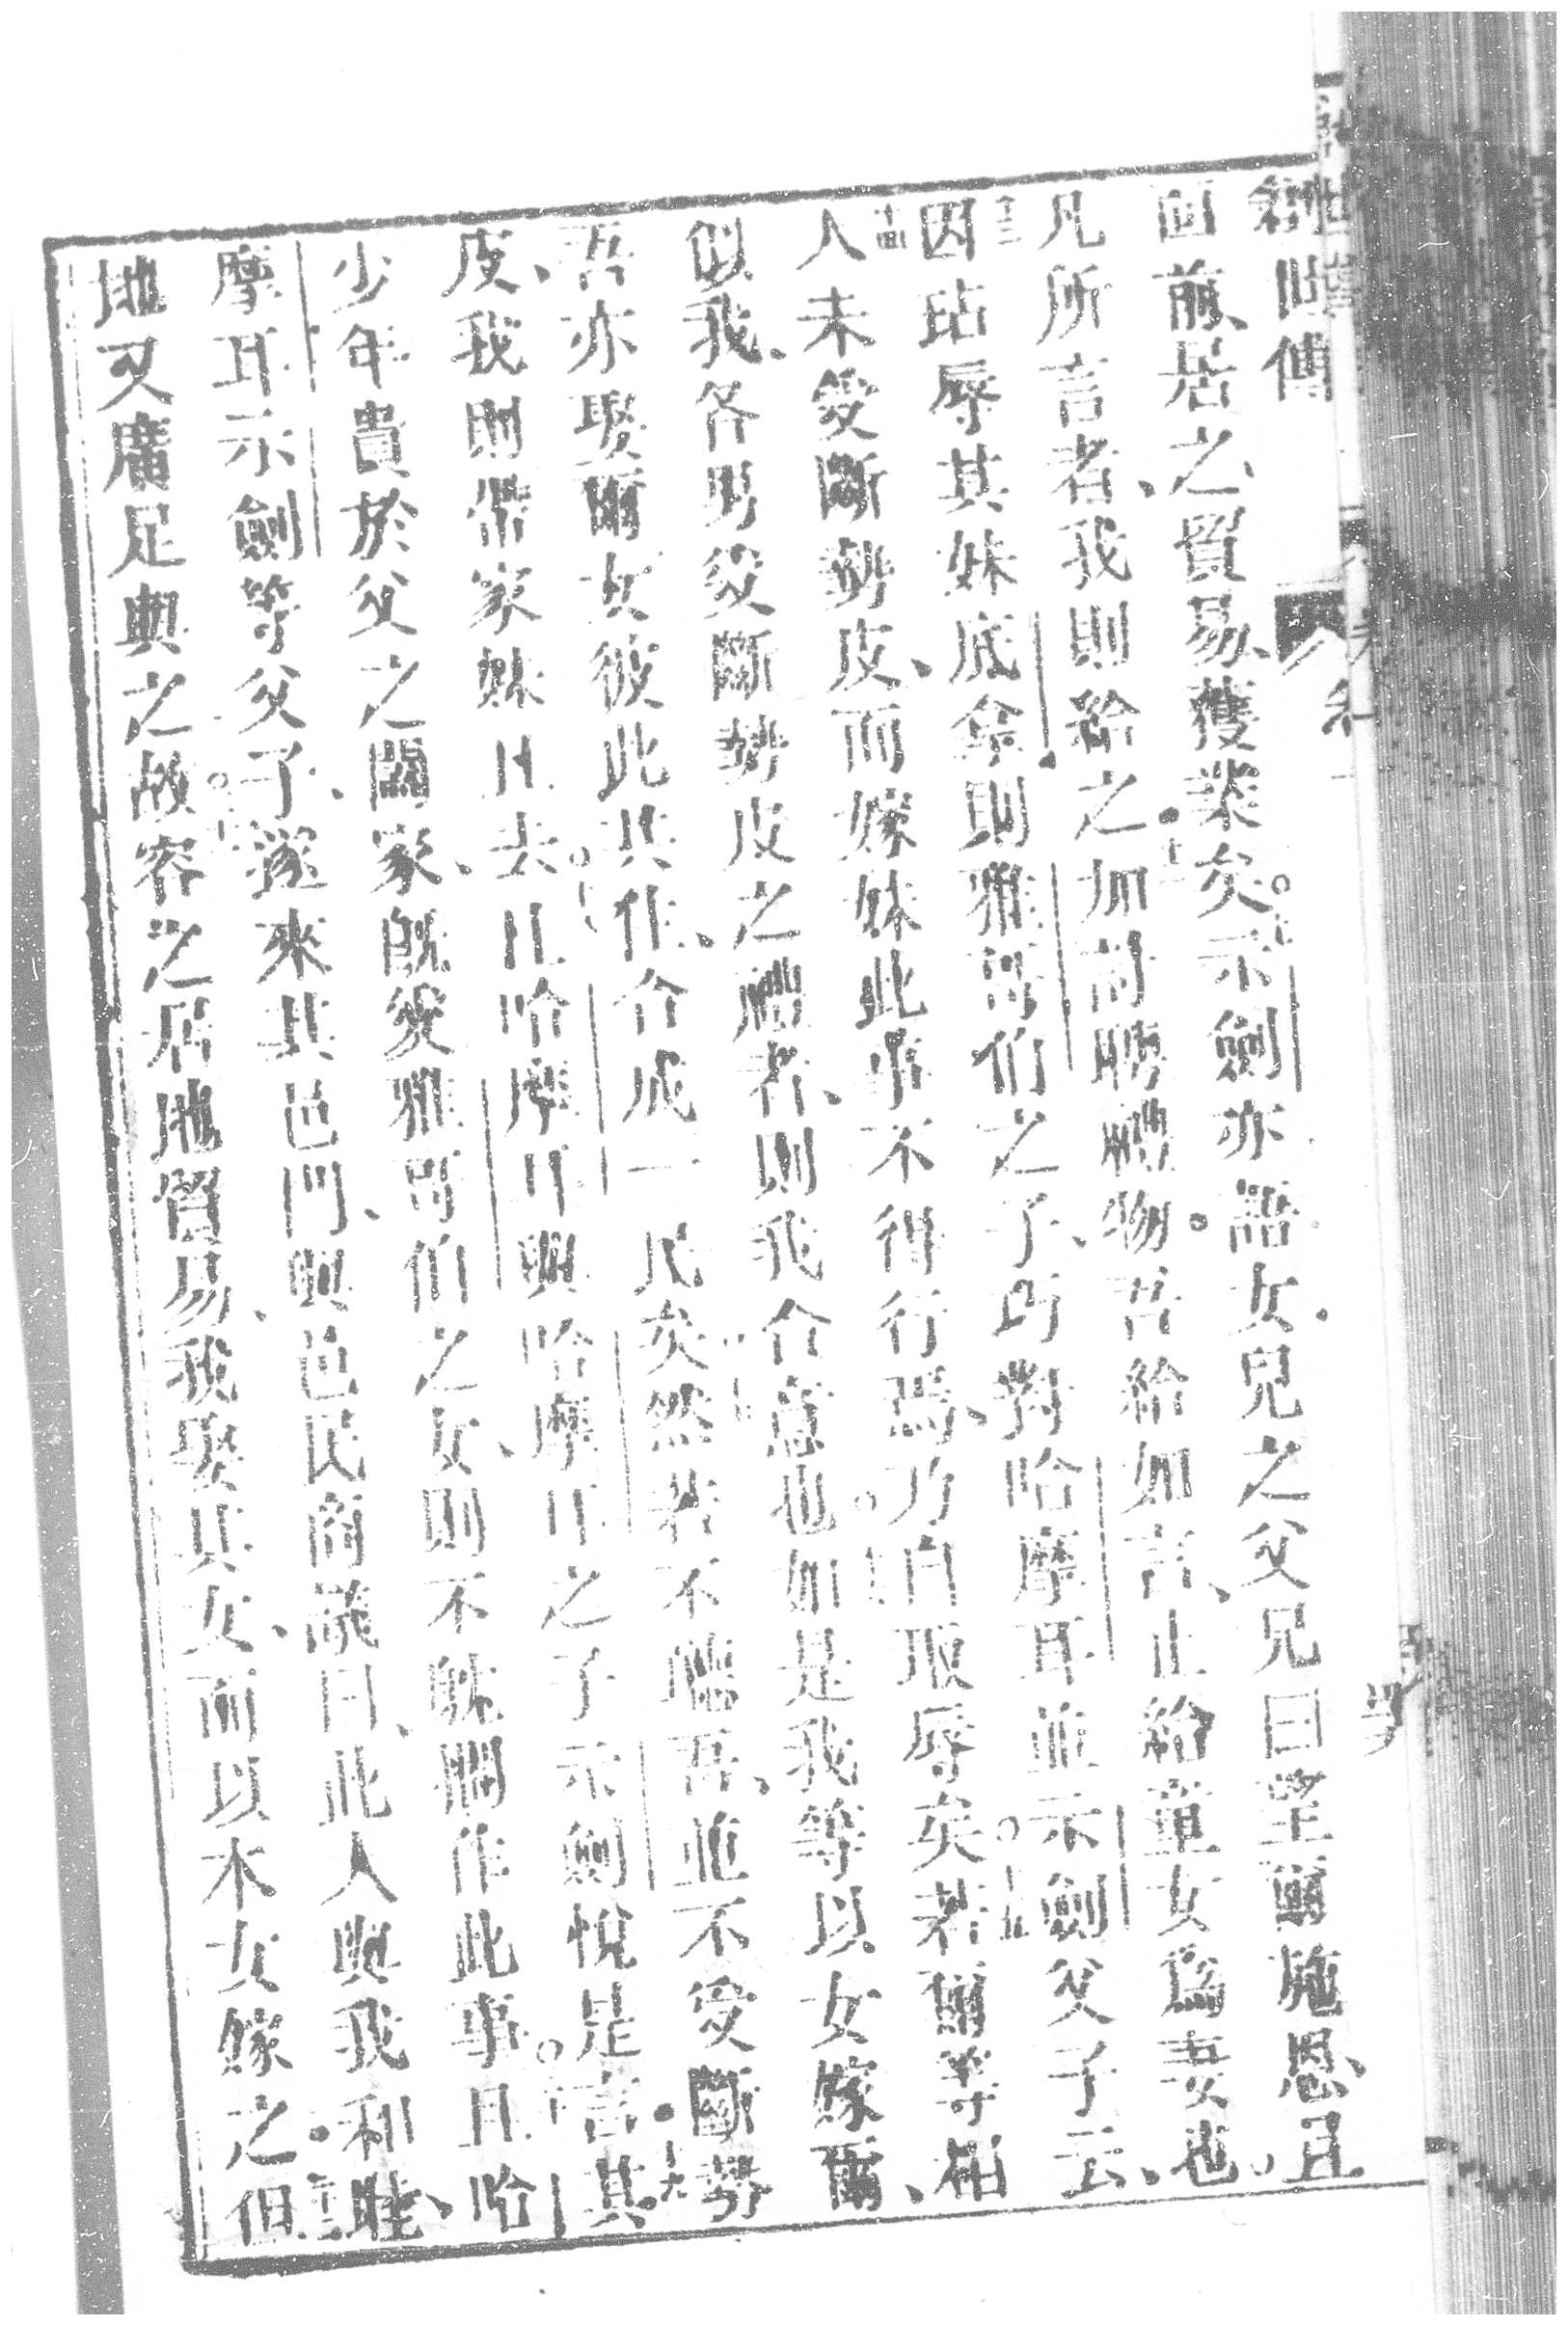 創世傳
面前、居之、貿易、獲業矣。十一示劍亦語女兒之父兄曰望爾施恩、且
凡所言者、我則給之。十二加討聘禮物。吾給如言、止給童女爲妻也。
十三因玷辱其妹底拿、則雅哥伯之子、巧對哈摩耳並示劍父子云、
十四人未受斷勢皮、而嫁妹、此事不得行焉、乃自取辱矣。十五若爾等相
似我、各男受斷勢皮之禮者、則我合意也。十六如是我等以女嫁爾、
吾亦娶爾女、彼此共住、合成一民矣。十七然若不聽吾、並不受斷勢
皮、我則帶家妹且去。十八且哈摩耳與哈摩耳之子示劍悅是言。十九其
少年貴於父之闔家、旣愛雅哥伯之女、則不躭擱作此事。二十且哈
摩耳示劍等父子、遂來其邑門、與邑民商議曰、二十一此人與我和睦、
地又廣足與之、故容之居地貿易、我娶其女、而以本女嫁之。二十二但